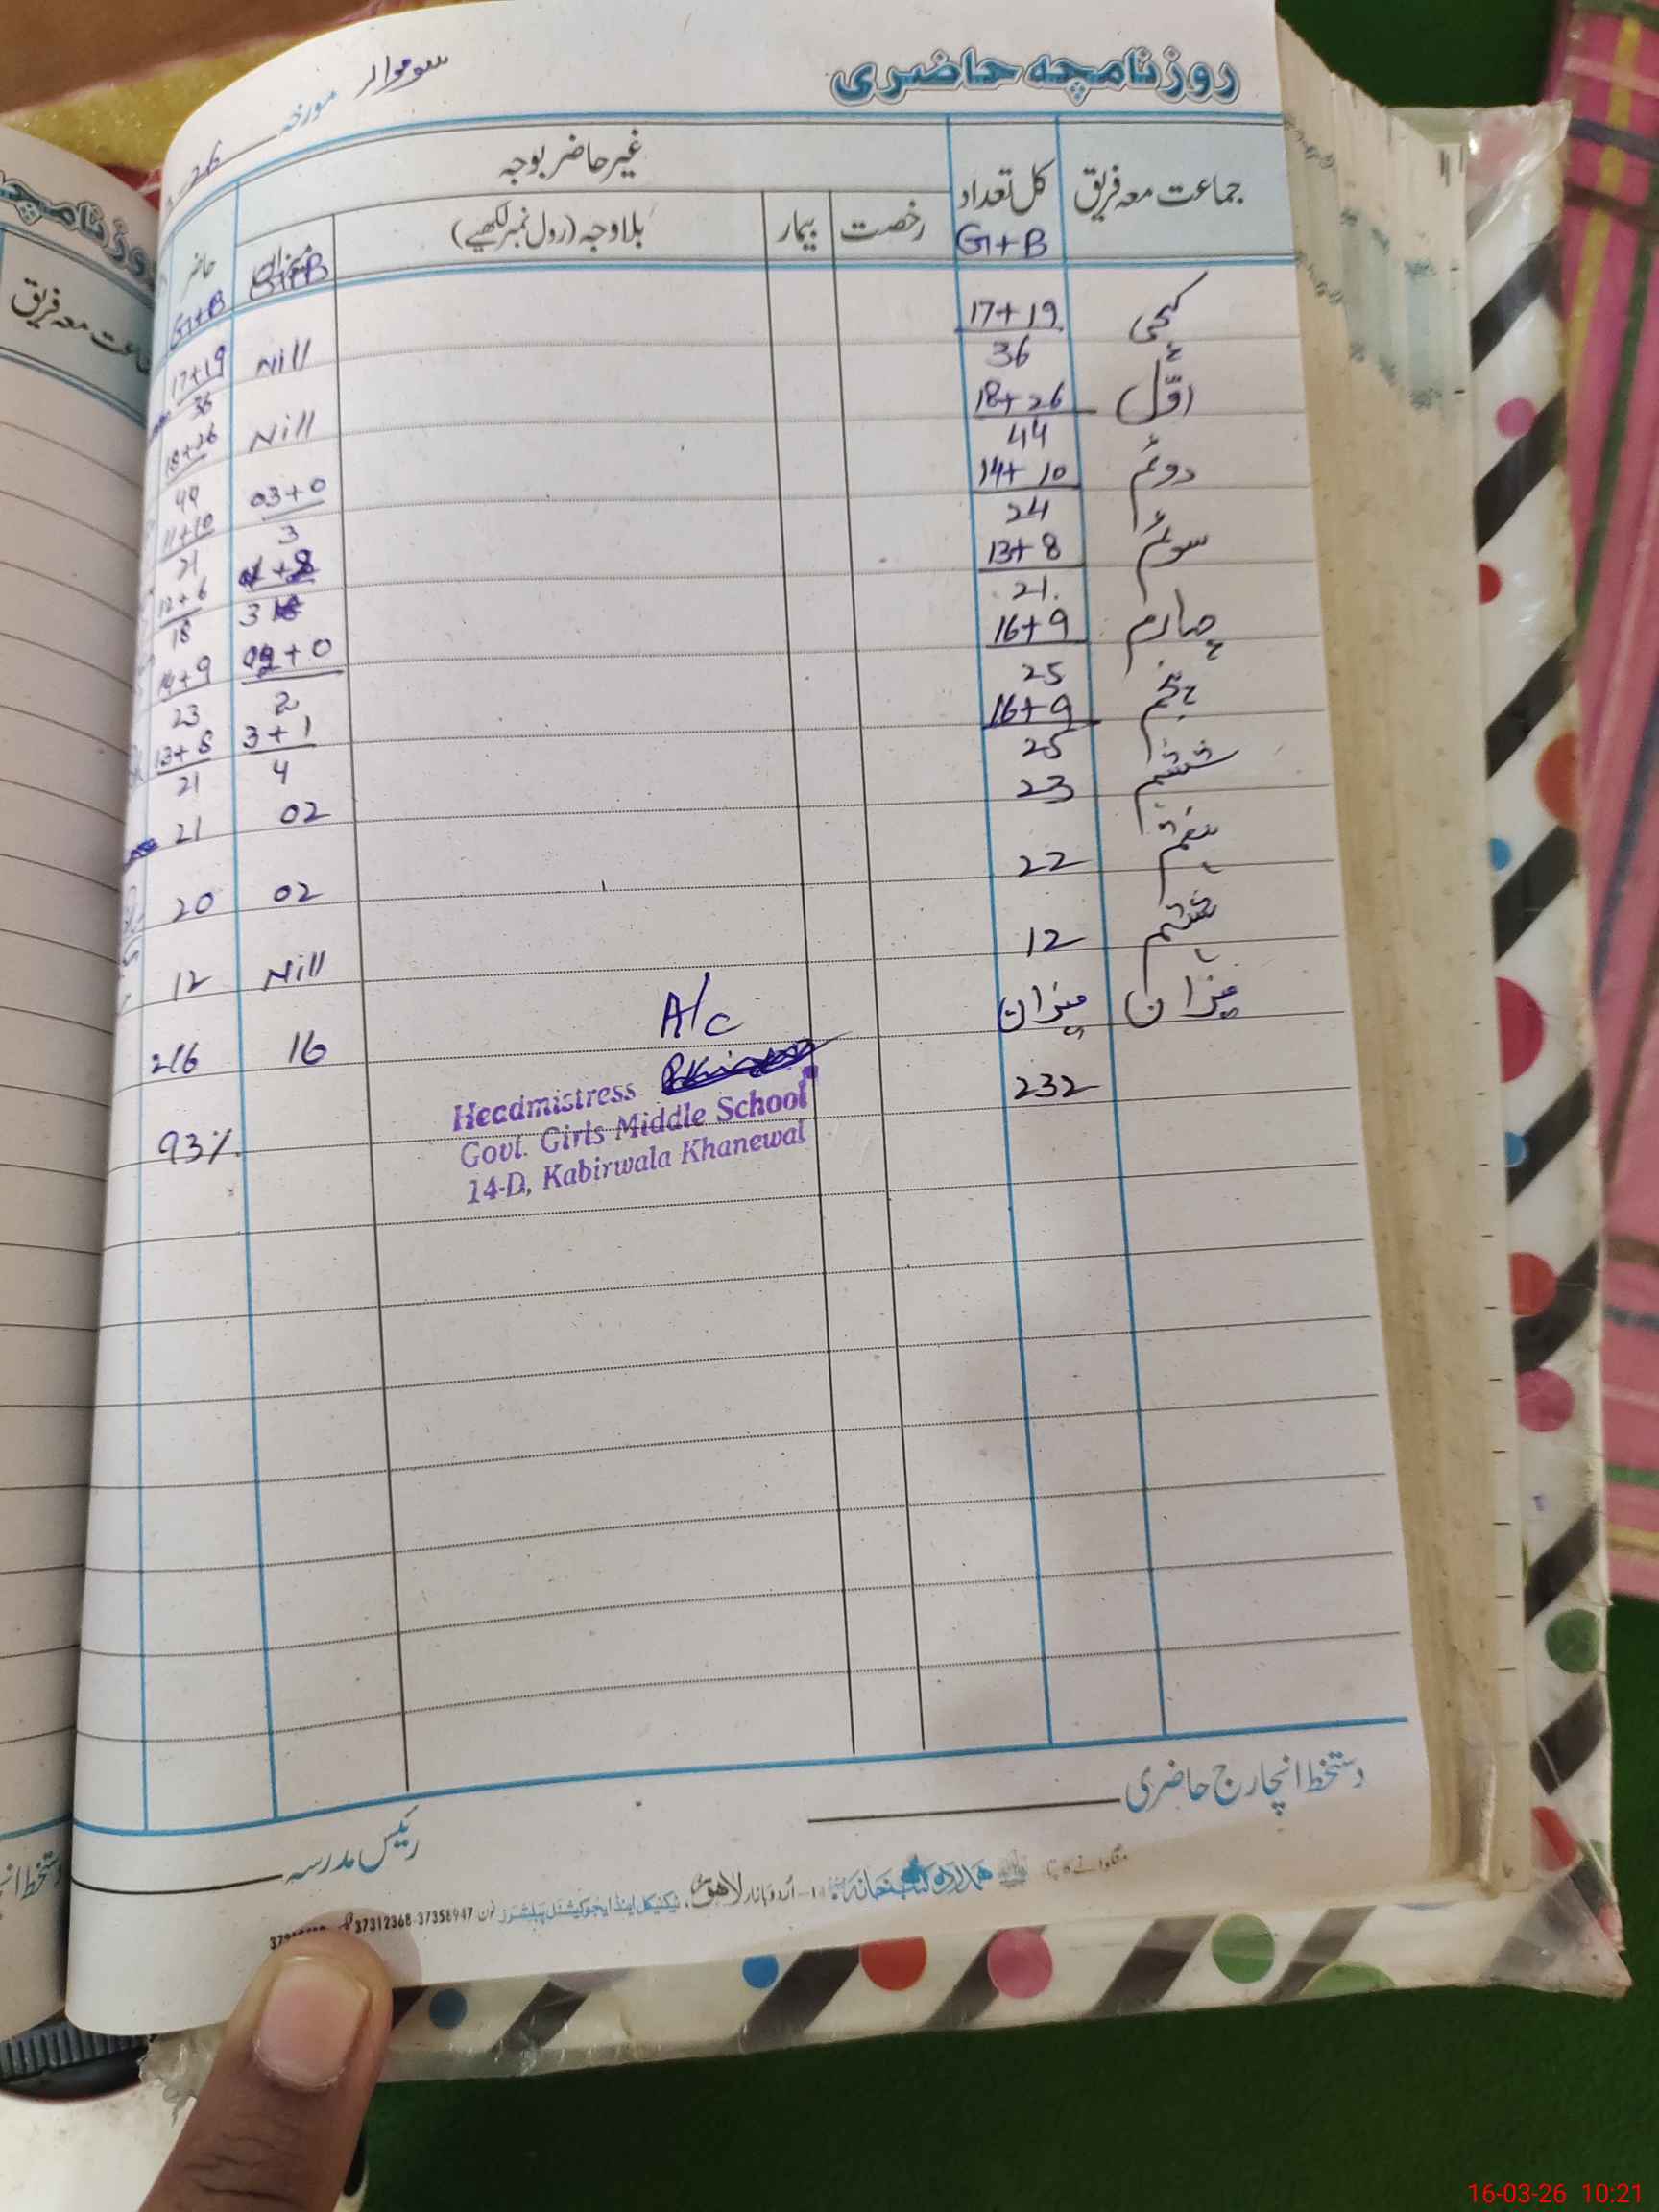 روزنامچہ حاضری
مورخہ سوموار
26
جماعت معہ فریق کل تعداد غیر حاضر بوجہ حاضر
G+B رخصت بیمار بلاوجہ (رول نمبر لکھیے) میزان G+B G+B
کچی 17+19 Nill 17+19
36 36
اوّل 18+26 Nill 18+26
44 44
دوئم 14+10 03+0 11+10
24 3 21
سوئم 13+8 +2 12+6
21. 3 18
چہارم 16+9 02+0 14+9
25 2 23
پنجم 16+9 3+1 13+8
25 4 21
ششم 23 02 21
ہفتم 22 02 20
ہشتم 12 Nill 12
میزان میزان 16 216
232
93%.
A/c
Headmistress
Govt. Girls Middle School
14-D, Kabirwala Khanewal
دستخط انچارج حاضری
رئیس مدرسہ
منگوانے کا پتہ ہمدرد کتب خانہ اُردو بازار لاہور، ٹیکنیکل اینڈ ایجوکیشنل پبلشرز فون 37358947-37312368
روزنامچہ
جماعت معہ فریق
دستخط
16-03-26 10:21